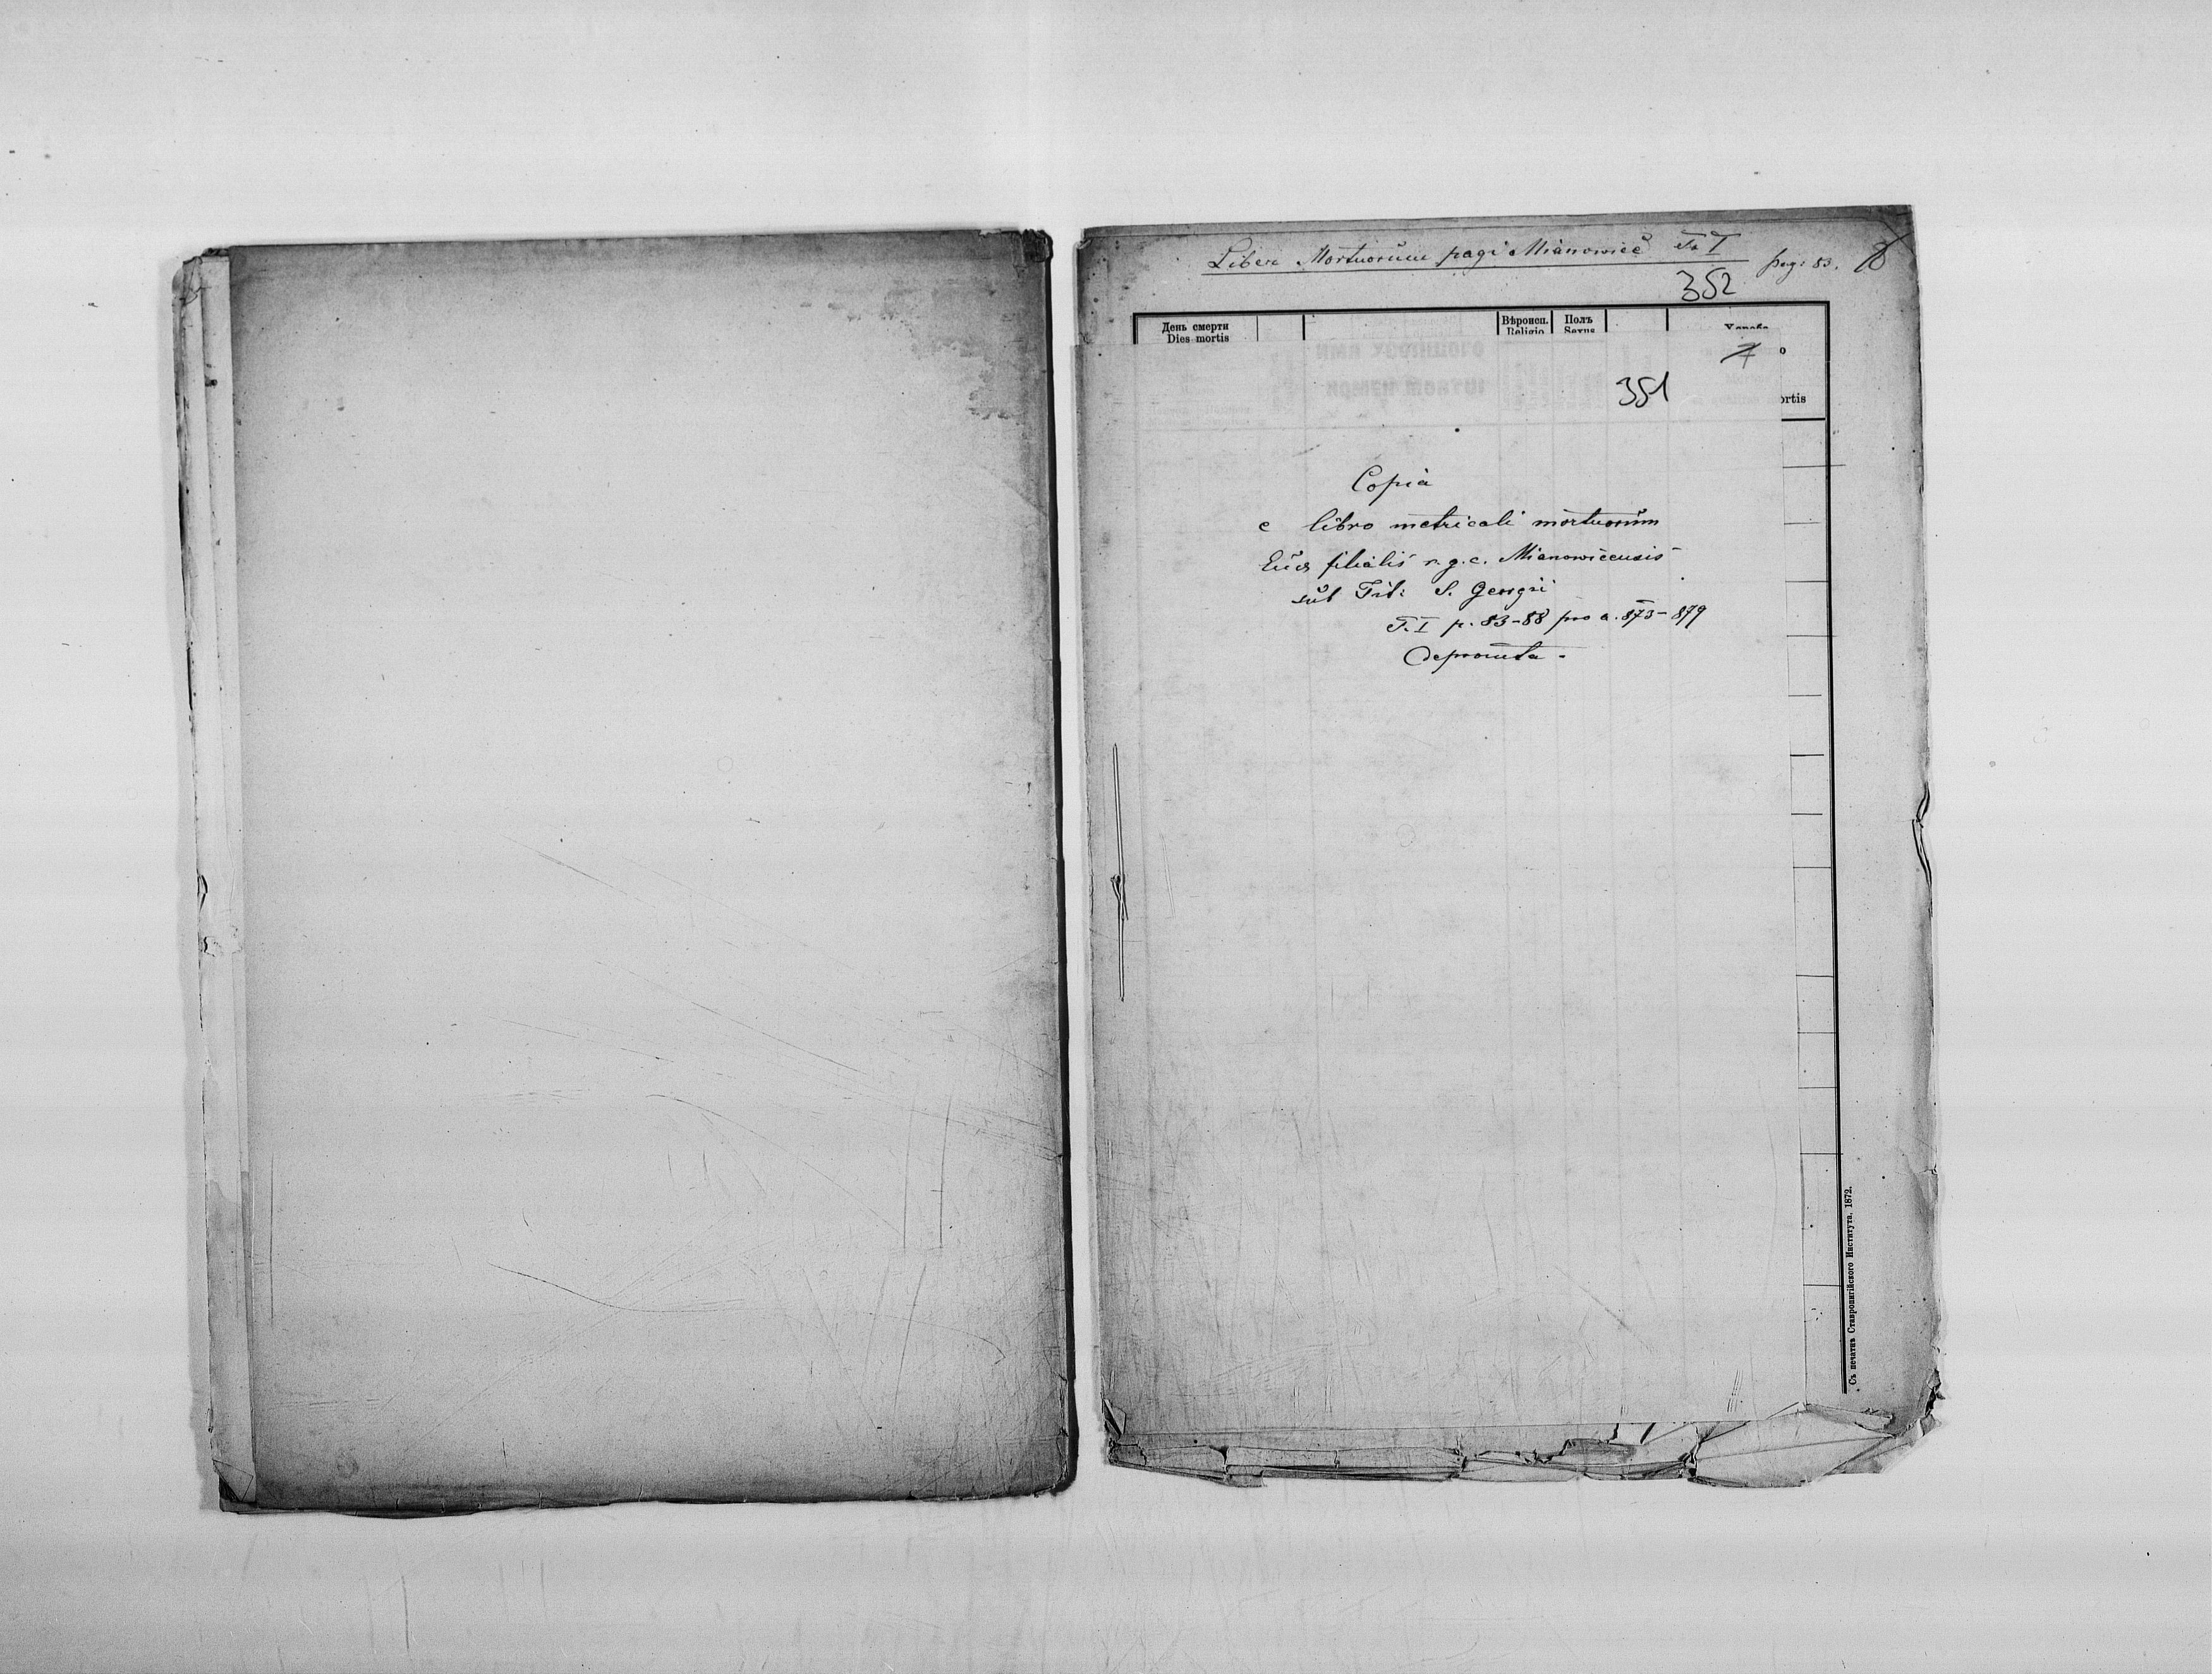 Liber Mortuorum pagi Mianowice T. I pag: 83.
352
День смерти
Dies mortis
Вѣроисп.
Religio
Полъ
Sexus
7
351
ortis
Copia
e libro metricali mortuorum
filialis r. g. c. Mianowiceensis
sub Tit: S. Georgii
T. I p. 83-88 pro a. 873-879
deprompta.
Съ печатнѣ Ставропигійского Института. 1872.